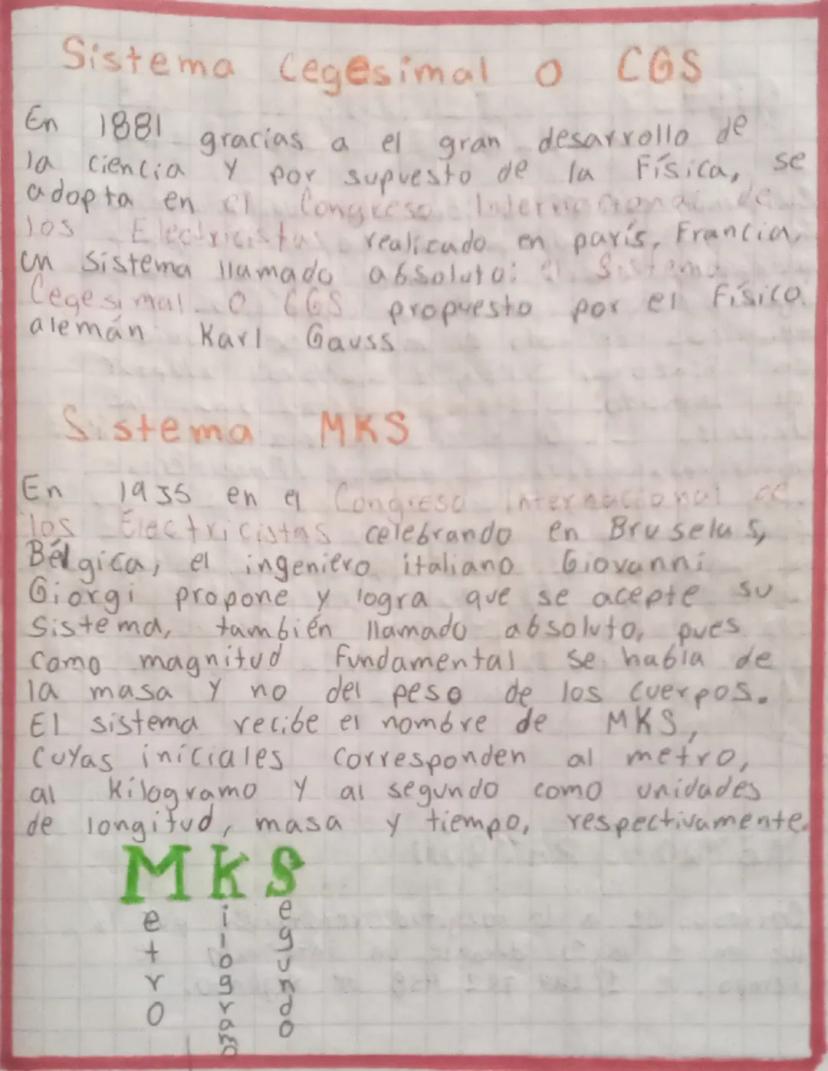 Sistema Cegesimal o CGS
En 1881 gracias a el gran desarrollo de
la ciencia y por supuesto de la Física, se
adopta en el Congreso Internacional de
los Electricistas realicado en parís, Francia,
un sistema llamado absoluto: el Sistema
Cegesimal o CGS propuesto por el Físico
alemán Karl Gauss
Sistema MKS
En 1935 en el Congreso internacional de
los Electricistas celebrando en Bruselas,
Bélgica, el ingeniero italiano Giovanni
Giorgi propone y logra que se acepte su
sistema, también llamado absoluto, pues
como magnitud fundamental se habla de
la masa y no del peso de los cuerpos.
El sistema recibe el nombre de MKS,
cuyas iniciales corresponden al metro,
al kilogramo y al segundo como unidades
de longitud, masa y tiempo, respectivamente.
MKS
etro
ilogramo
egundo